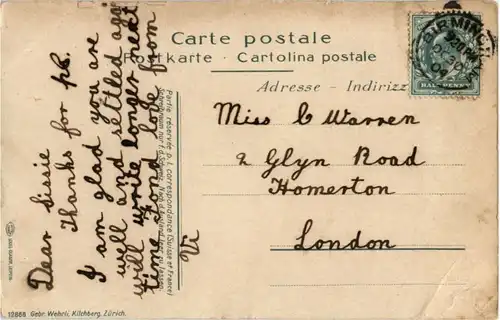 Carte postale
Postkarte - Cartolina postale
Adresse - Indirizzo
Miss C Warren
2 Glyn Road
Homerton
London
Dear Sissie
Thanks for pc.
I am glad you are
well and settled again
will write longer next
time Fond love from
Vi
Partie réservée à l. correspondance (Suisse et France)
BIRMINGHAM
HALFPENNY
12868 Gebr. Wehrli, Kilchberg, Zürich.